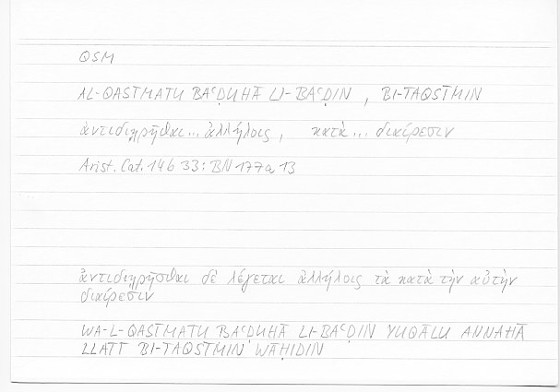 QSM
AL-QASĪMATU BAʿḌUHĀ LI-BAʿḌIN , BI-TAQSĪMIN
ἀντιδιῃρῆσθαι... ἀλλήλοις, κατὰ ... διαίρεσιν
Arist. Cat. 14b 33 : BN 177a, 13
ἀντιδιῃρῆσθαι δὲ λέγεται ἀλλήλοις τὰ κατὰ τὴν αὐτὴν
διαίρεσιν
WA-L-QASĪMATU BAʿḌUHĀ LI-BAʿḌIN YUQĀLU ANNAHĀ
LLATĪ BI-TAQSĪMIN WĀḤIDIN